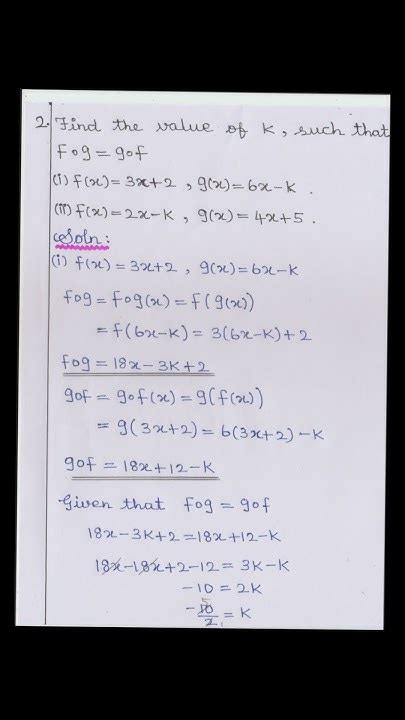 2. Find the value of K, such that
fog = gof
(i) f(x) = 3x+2 , g(x) = 6x-K .
(ii) f(x) = 2x-K , g(x) = 4x+5 .
Soln:
(i) f(x) = 3x+2 , g(x) = 6x-K
fog = fog(x) = f(g(x))
= f(6x-K) = 3(6x-K)+2
fog = 18x-3K+2
gof = gof(x) = g(f(x))
= g(3x+2) = 6(3x+2)-K
gof = 18x+12-K
Given that fog = gof
18x-3K+2 = 18x+12-K
18x-18x+2-12 = 3K-K
-10 = 2K
5
-10/2 = K
1